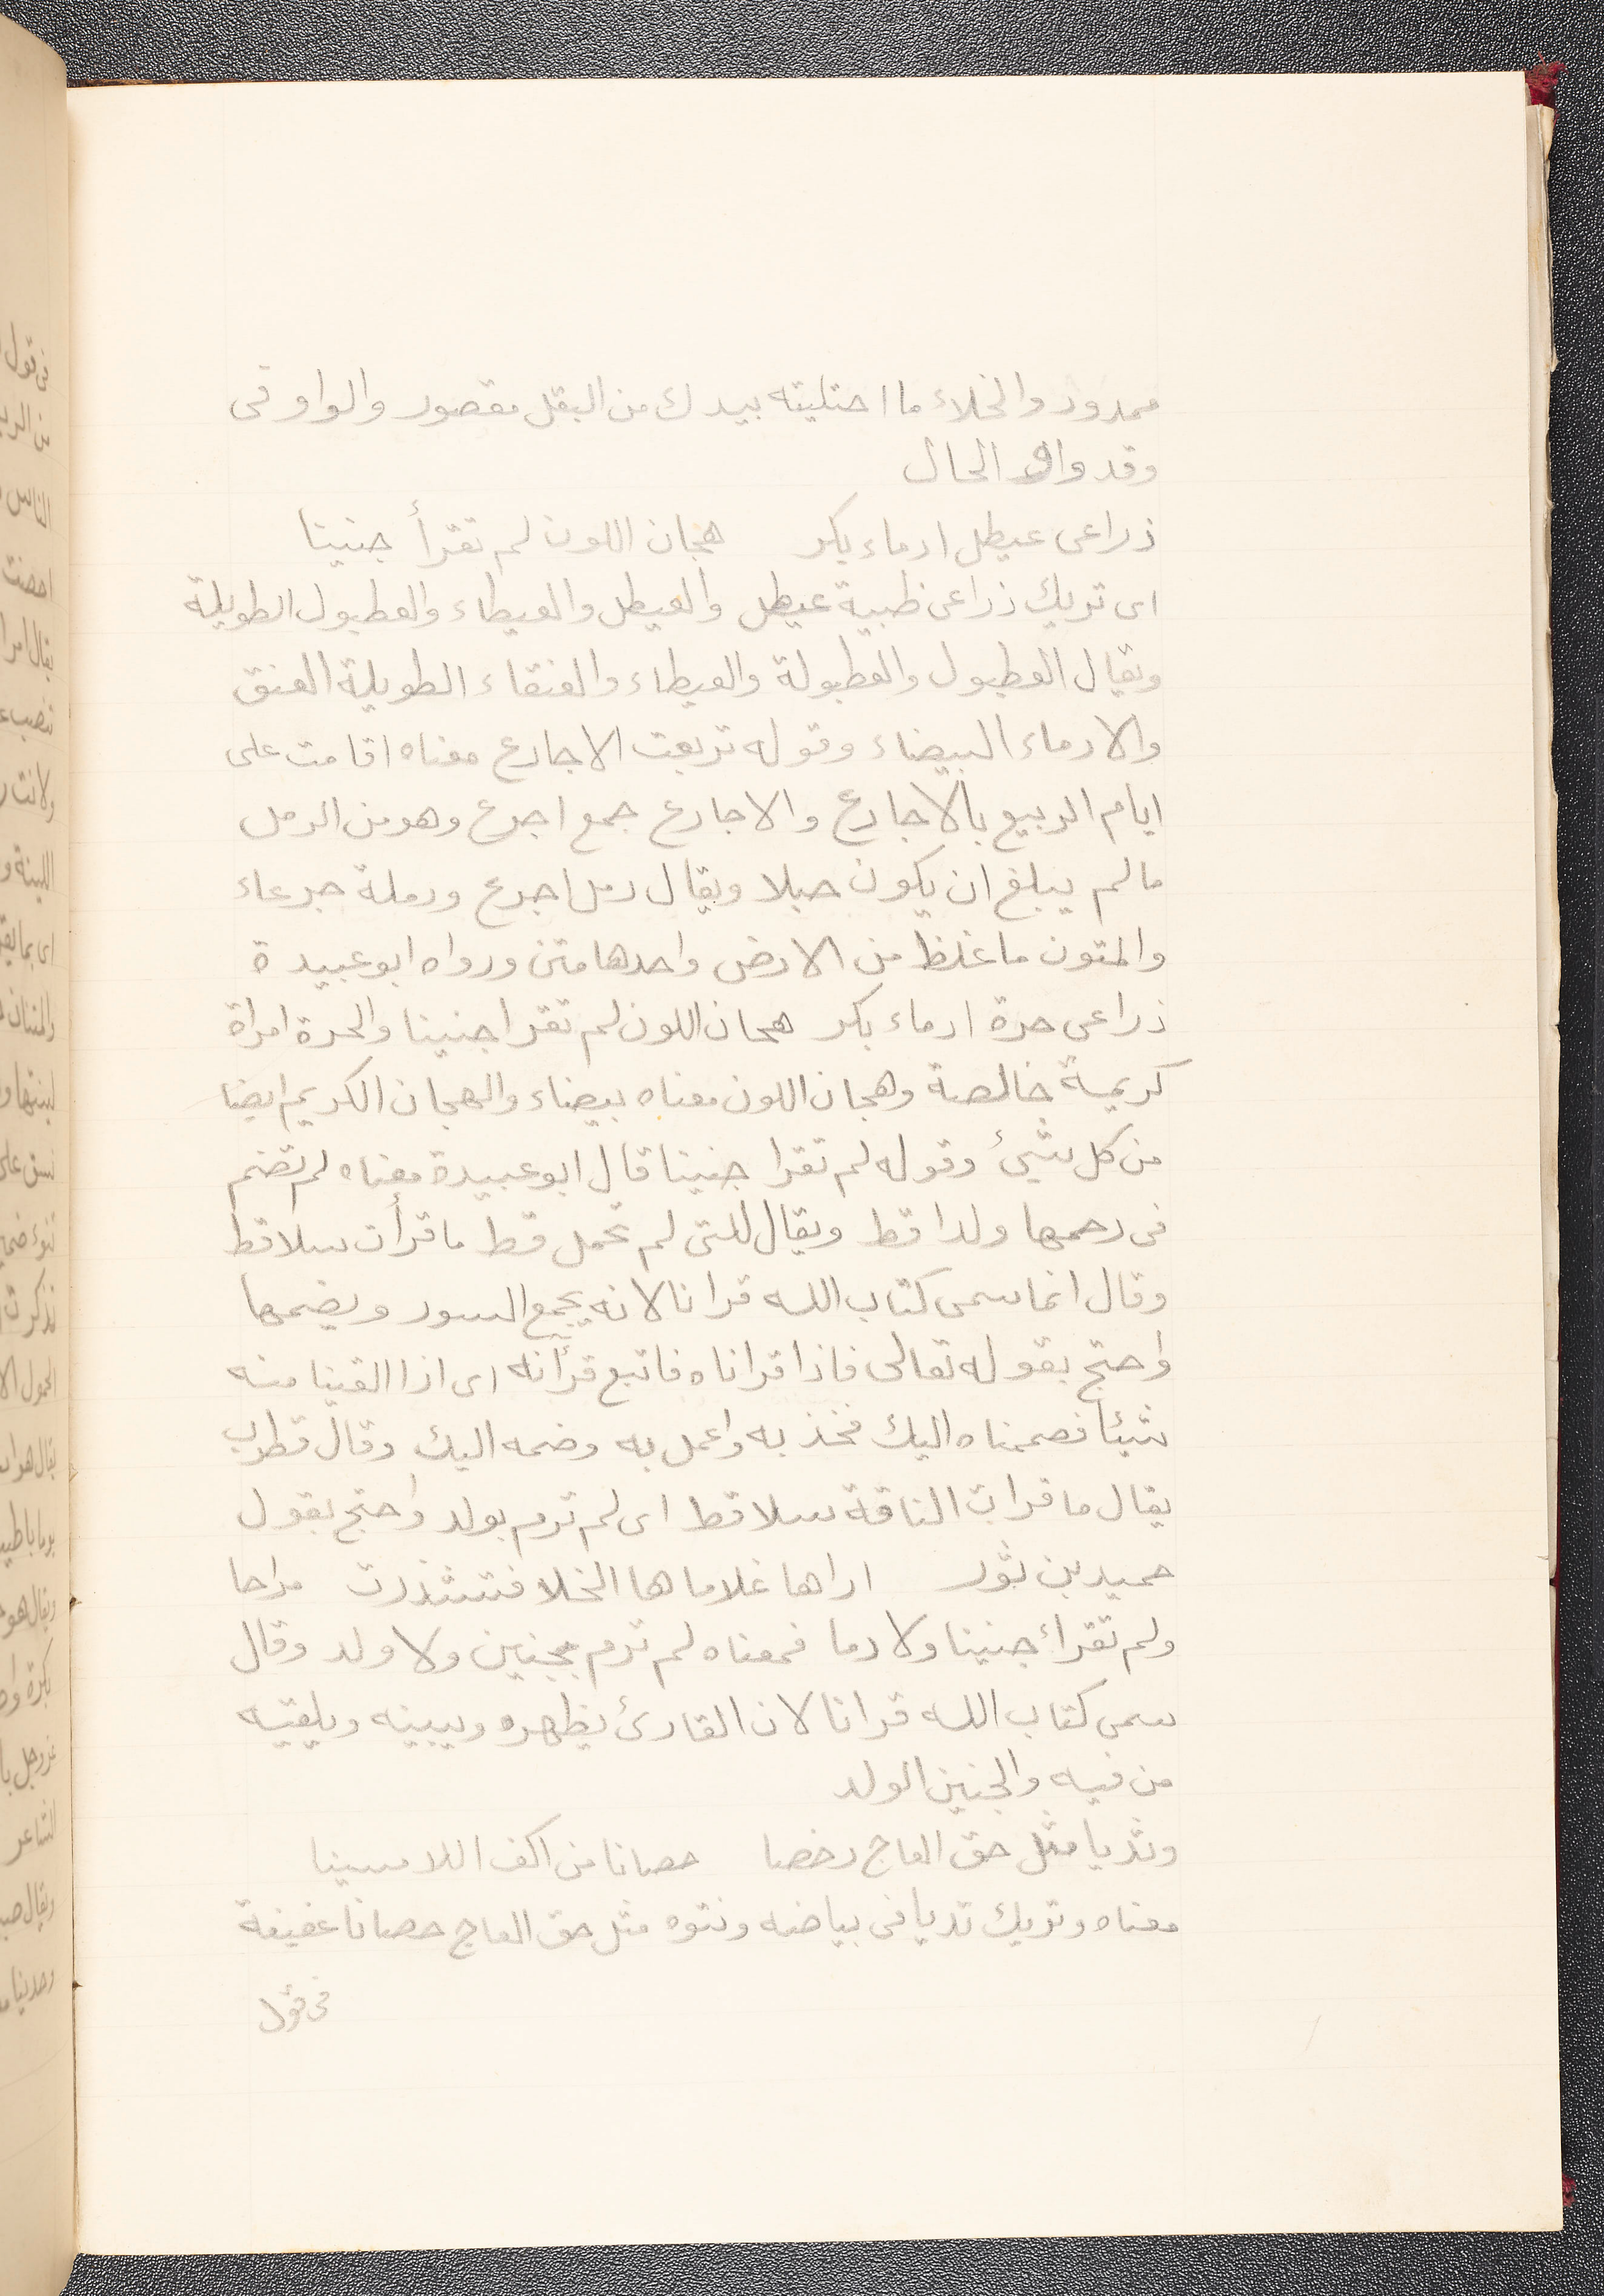 ممدود والخلاء ما احتليته بيدك من البقل مقصور والواو فى
وقد واو الحال
ذراعى عيطل ادماء بكر هجان اللون لم تقرأ جنينا
اى تريك ذراعى ظبية عيطل والعيطل والعيطاء والعطبول الطويلة
ويقال العطبول والعطبولة والعيطاء والعنقاء الطويلة العنق
والادماء البيضاء وقوله تربعت الاجارع معناه اقامت على
ايام الربيع بالاجارع والاجارع جمع اجرع وهو من الرمل
مالم يبلغ ان يكون حبلا ويقال رمل اجرع ورملة جرعاء
والمتون ما غلظ من الارض واحدها متن ورواه ابو عبيدة
ذراعى حرة ادماء بكر هجان اللون لم تقرا جنينا والحرة امراة
كريمة خالصة وهجان اللون معناه بيضاء والهجان الكريم ايضا
من كل شئ وقوله لم تقرا جنينا قال ابو عبيدة معناه لم تضم
فى رحمها ولدا قط ويقال للتى لم تحمل قط ما قرأت سلا قط
وقال انما سمى كتاب الله قرانا لانه يجمع السور ويضمها
واحتج بقوله تعالى فاذا قراناه فاتبع قرأنه اى اذا القينا منه
شيئا فصممناه اليك فخذ به واعمل به وضمه اليك وقال قطرب
يقال ما قرات الناقة سلا قط اى لم ترم بولد واحتج بقول
حميد بن ثور اراها غلاماها الخلا فتشذرت مراحا
ولم تقراء جنينا ولا دما فمعناه لم ترم بجنين ولا ولد وقال
سمى كتاب الله قرانا لان القارئ يظهره ويبينه ويلقيه
من فيه والجنين الولد
وثديا مثل حق العاج رخصا حصانا من اكف اللامسينا
معناه وتريك ثديا فى بياضه ونتوه مثل حق العاج حصانا عفيفة
فى قول